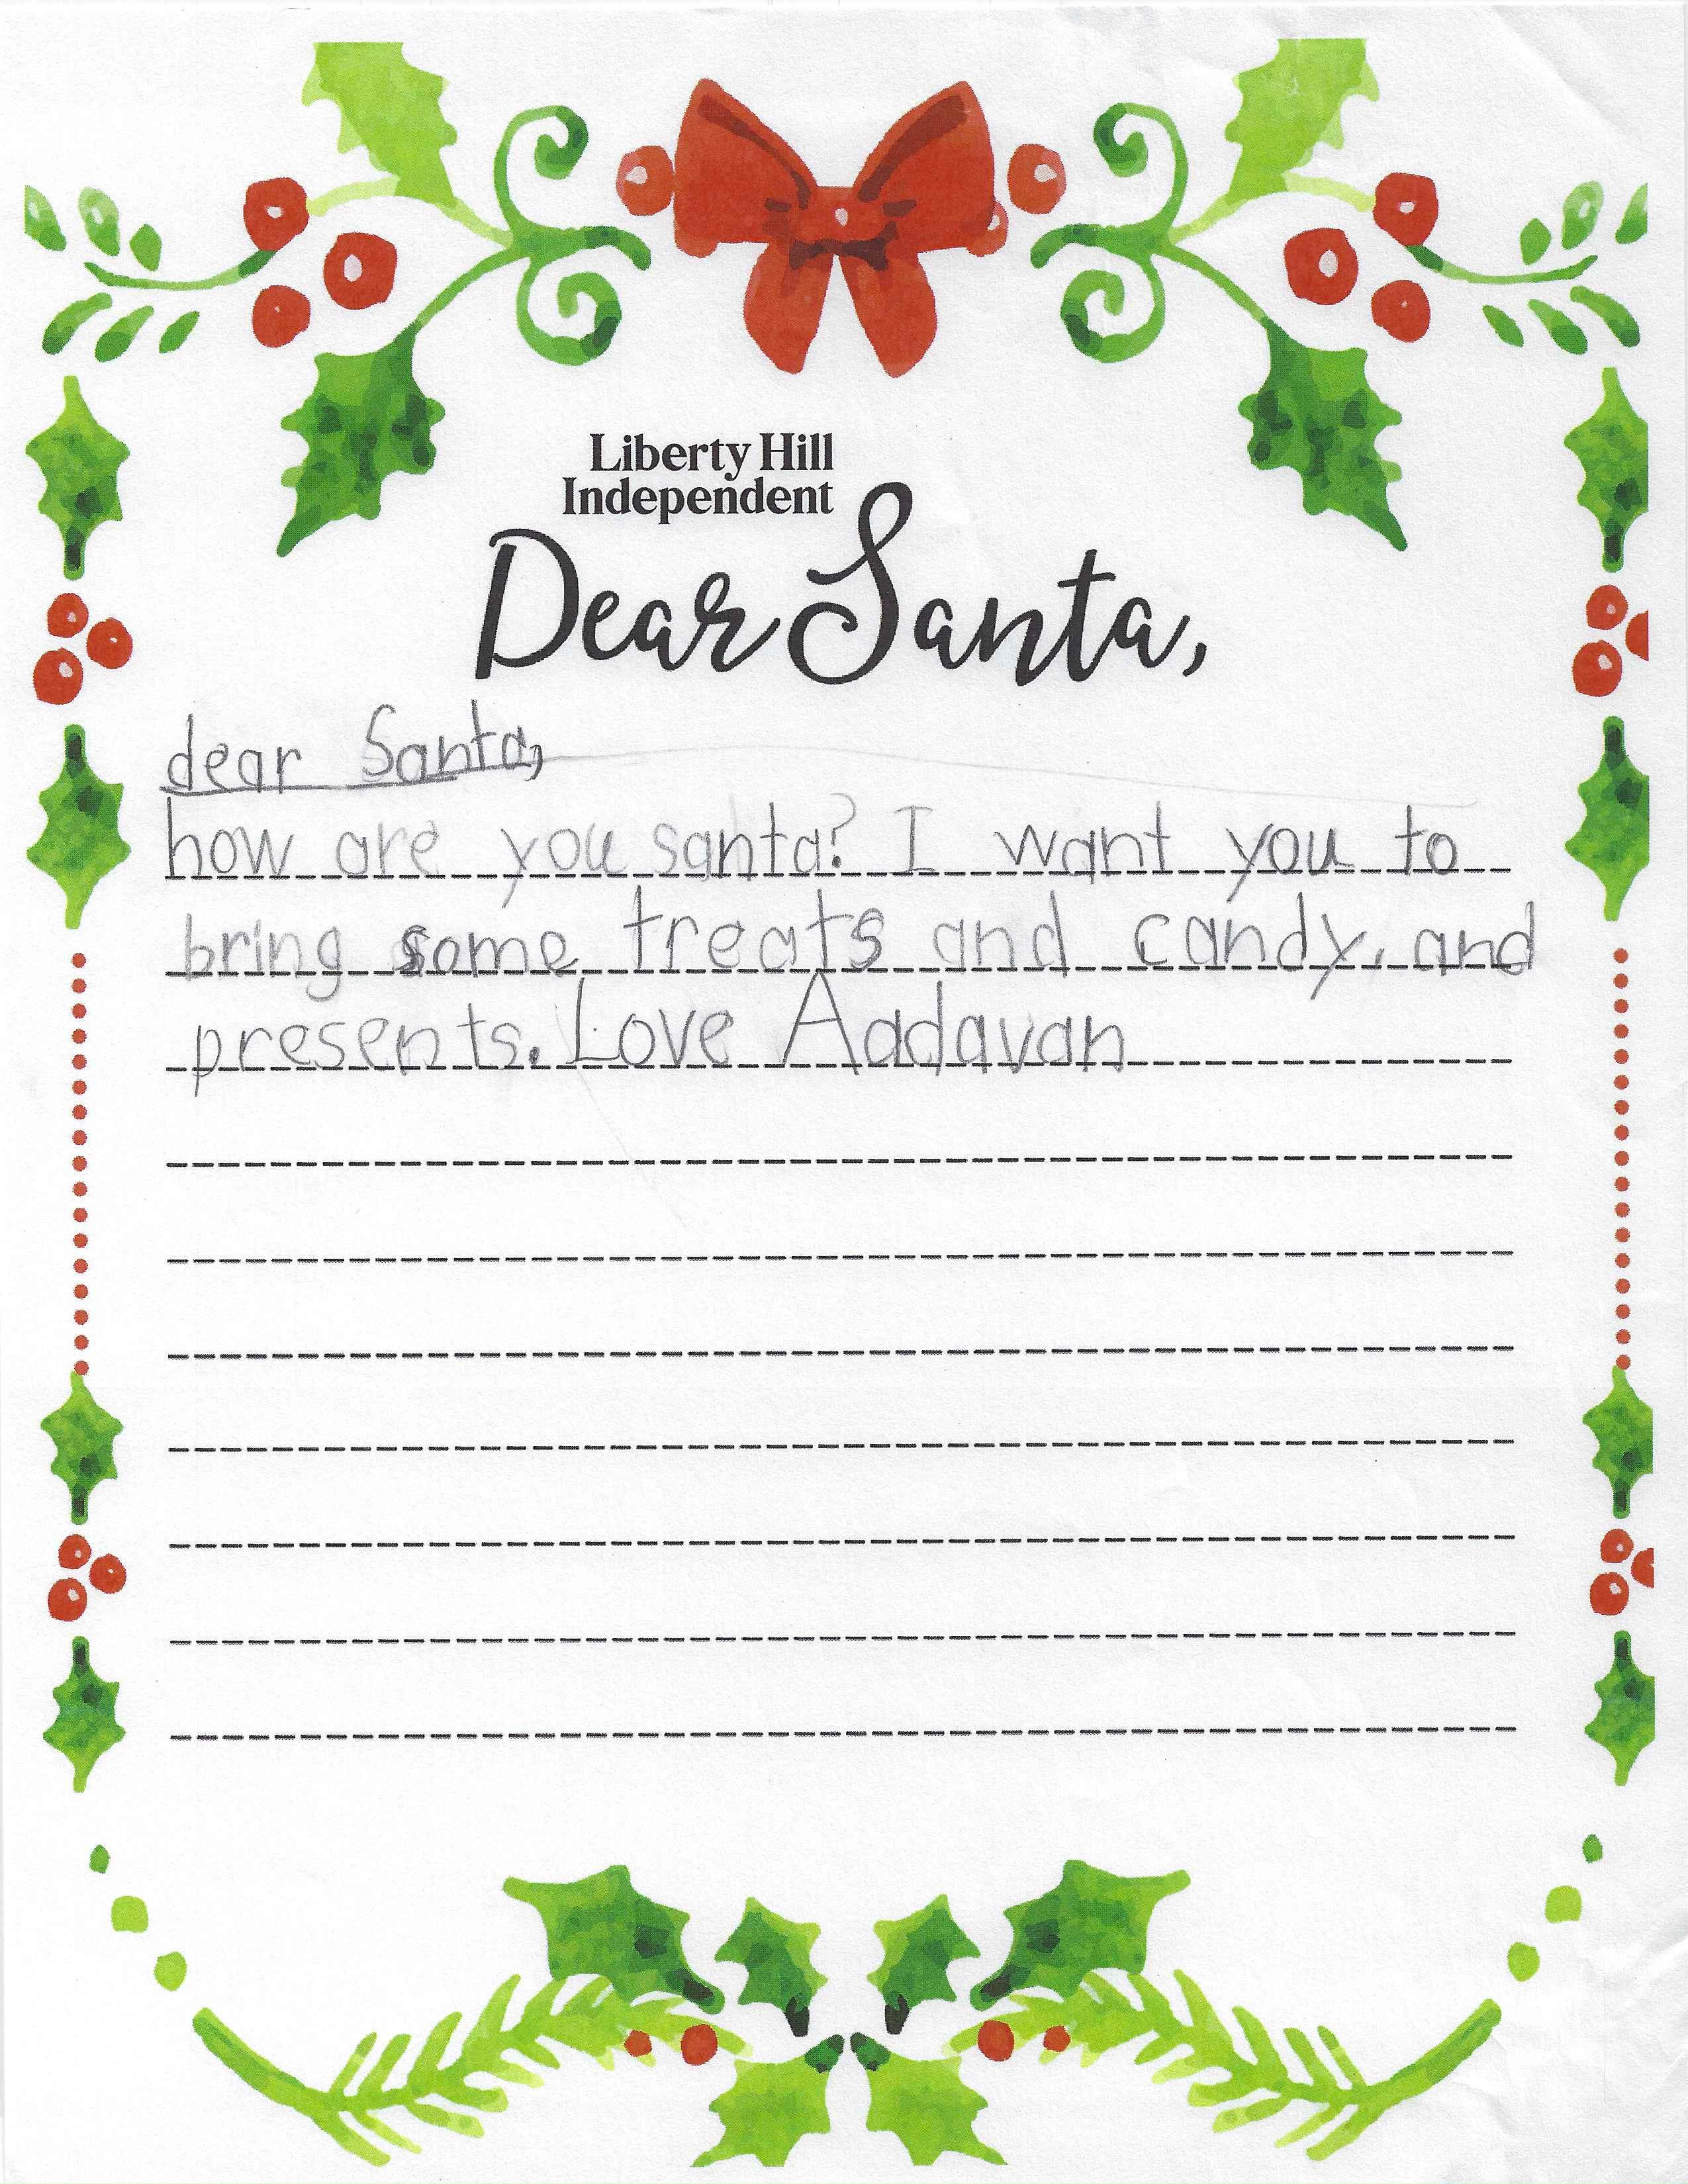 Liberty Hill
Independent
Dear Santa,
dear Santa,
how are you santa? I want you to
bring some treats and candy, and
presents. Love Aadavan